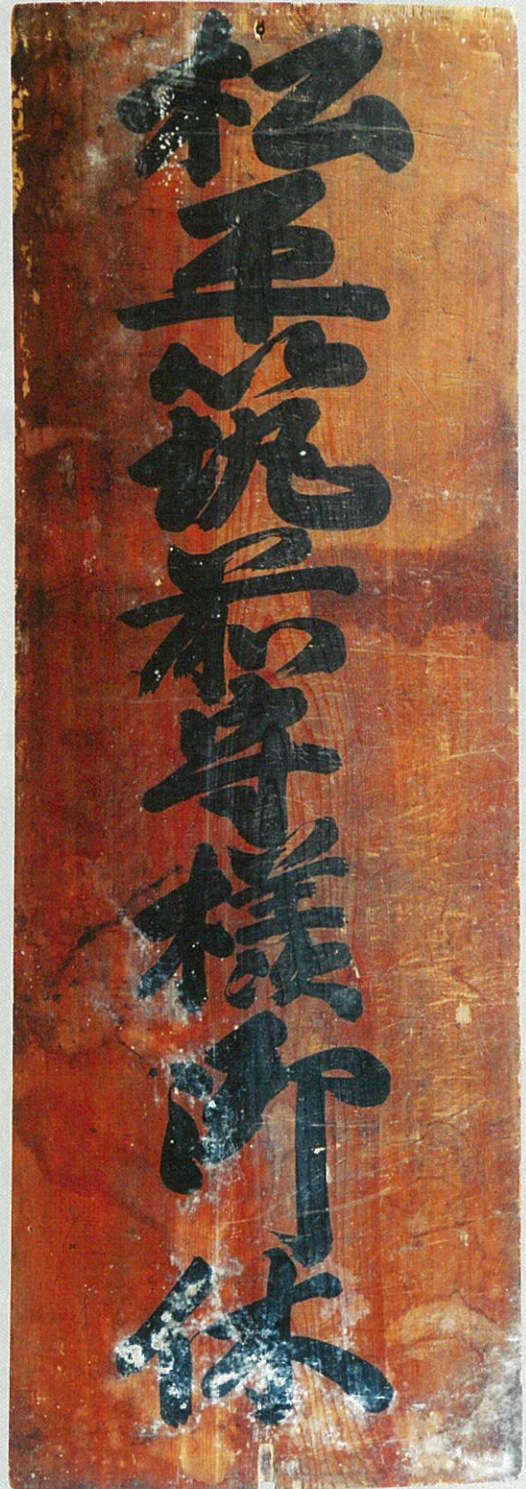 松平筑前守様御休